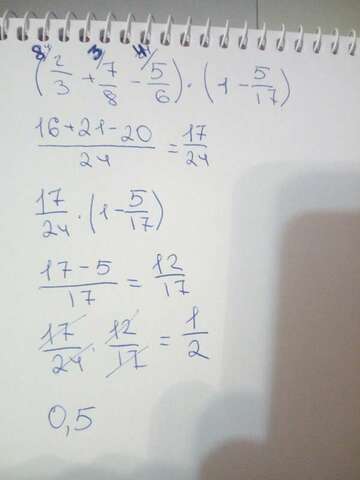 8/ 3/ 4/
(2/3 + 7/8 - 5/6) · (1 - 5/17)
16+21-20/24 = 17/24
17/24 · (1 - 5/17)
17-5/17 = 12/17
17/24 · 12/17 = 1/2
0,5